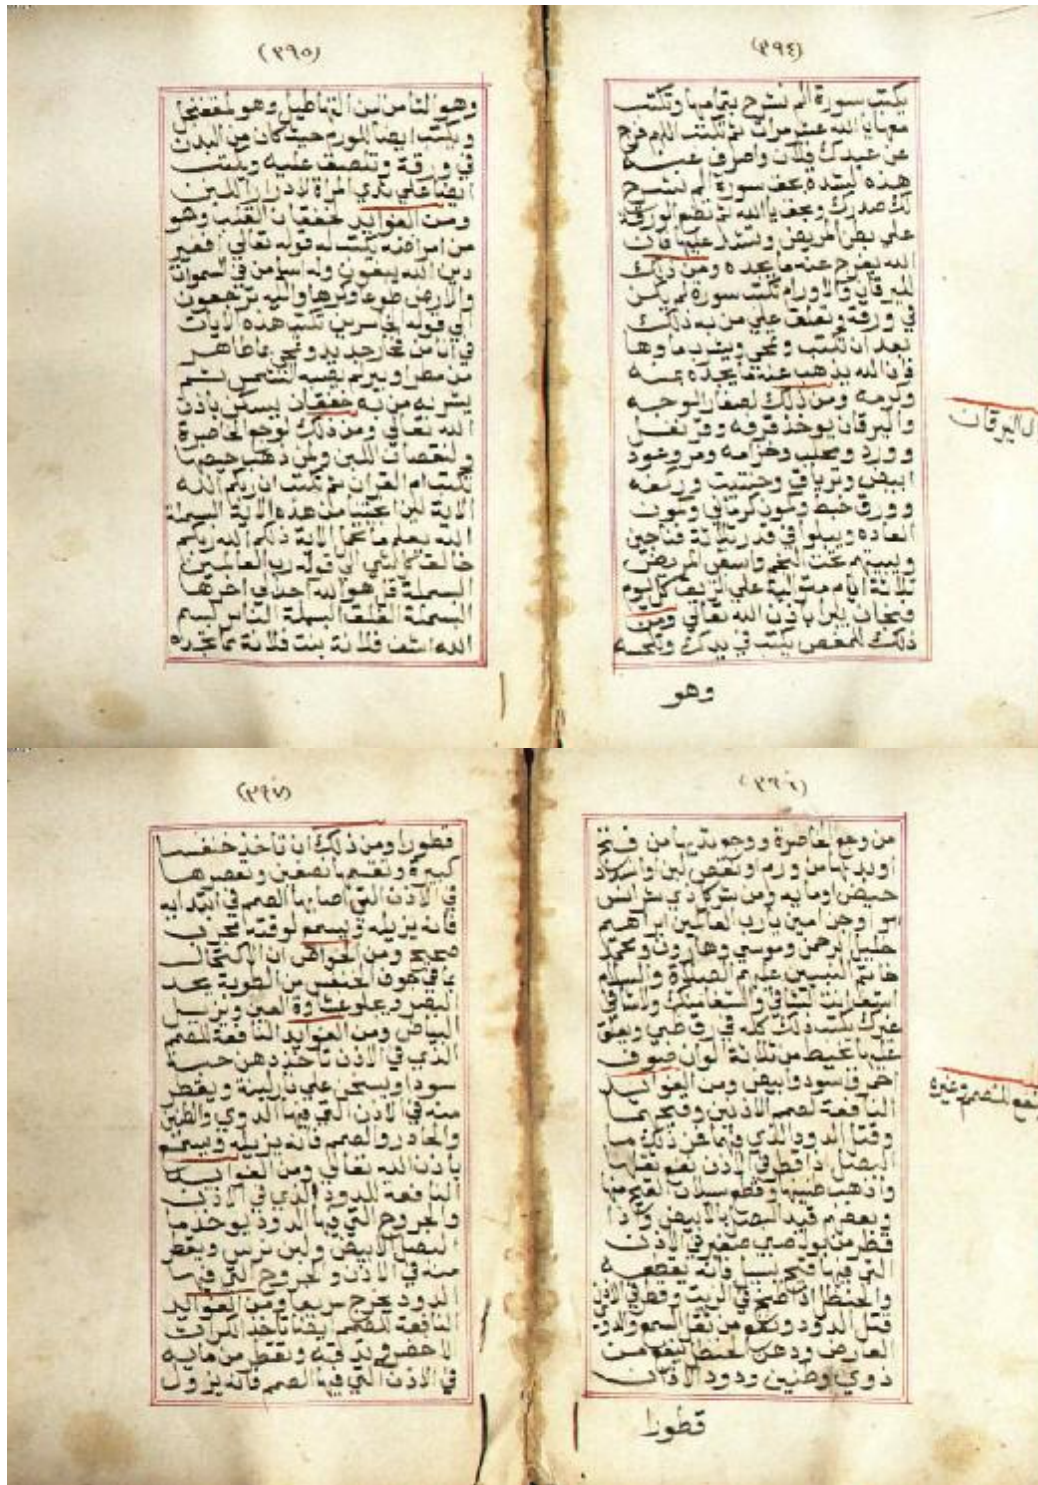 (٣٩٤)
يكتب سورة الم نشرح بتمامها وتكتب
مع يا الله عشر مرات ثم تكتب اللهم فرج
عن عبدك فلان واصرف عنه
هذه الشده بحق سورة الم نشرح
لك صدرك وبحق يا الله ثم تضع الورقة
علي بطن المريض وتشد عليها فان
الله يفرج عنه ما يجده ومن ذلك
لليرقان والاورام تكتب سورة لم يكن
في ورقة وتعلق علي من به ذلك
بعد ان تكتب وتمحي ويشرب ماوها
فان الله يذهب عنه ما يجده بمنه
وكرمه ومن ذلك لصفار الوجه
واليرقان يوخذ قرفه وقرنفل
وورد ومحلب وخزامه ومر وعود
ابيض وترياق وحنتيت
وورق خبط وكمون كرماني وكمون
العاده ويبلوا في قدر ثلاثة فناجين
ويبيتهم تحت النجم واسقي المريض
ثلاثة ايام متوالية علي الريق كل يوم
فنجان يبرا باذن الله تعالي ومن
ذلك للمغص يكتب في يدك وتلحسه
وهو
اليرقان
(٣٩٥)
وهو الثامن من التهاطيل وهو
ويكتب ايضا للورم حيث كان من البدن
في ورقة وتلصق عليه ويكتب
ايضا علي ثدي المراة لادرار اللبن
ومن الفوايد لخفقان القلب وهو
من امراضه يكتب له قوله تعالي افغير
دين الله يبغون وله اسلم من في السموات
والارض طوعا وكرها واليه ترجعون
الي قوله الخاسرين تكتب هذه الايات
في انا من فخار جديد وتمحي بما طاهر
من مطر او بير لم يصبه الشمس ثم
يشربه من به خفقان يسكن باذن
الله تعالي ومن ذلك لوجع الخاصرة
ولنقصان اللبن ولمن ذهب حيضها
تكتب ام القران ثم تكتب ان ربكم الله
الاية لين انجيتنا من هذه الاية البسملة
الله يعلم ما تحمل الاية ذلكم الله ربكم
خالق كل شي الي قوله رب العالمين
البسملة قل هو الله احد الي اخرها
البسملة الفلق البسملة الناس بسم
الله اشف فلانة بنت فلانة مما تجده
(٣٩٦)
من وجع الخاصرة ووجع ثديها من فتح
او بديها من ورم او نقص لبن وانسداد
حيض او ما به ومن شر كل ذي شر انس
او جن امين يارب العالمين ابراهيم
خليل الرحمن وموسي وهارون ومحمد
خاتم النبيين عليهم الصلاة والسلام
انت الشافي ولا شفا الا شفاك ولا شافي
غيرك يكتب ذلك كله في رق ظبي ويعلق
عليها بخيط من ثلاثة الوان صوف
احمر واسود وابيض ومن الفوايد
النافعة لصمم الاذنين وقيحهما
وقتل الدود الذي فيهما فمن ذلك ما
البصل اذا قطر في الاذن نفع ثقلها
واذهب طنينها وقطع سيلان القيح منها
وبعضهم قيد البصل بالابيض واذا
قطر من بول صبي صغير في الاذن
التي فيها قيح يسيل فانه يقطعه
والحنظل اذا طبخ في الزيت وقطر في الاذن
قتل الدود ونفع من ثقل السمع والدوي
العارض ودهن الحنظل ينفع من
دوي وطنين ودود الاذن
قطورا
نفع للصمم وغيره
(٣٩٧)
قطورا ومن ذلك ان تاخذ خنفسا
كبيرة وتقسمها نصفين وتعصرها
في الاذن التي اصابها الصمم في ابتدايه
فانه يزيله ويسمع لوقته مجرب
صحيح ومن الخواص ان الاكتحال
بما في جوف الخنفس من الرطوبة يحد
البصر ويجلو غشاوة العين ويزيل
البياض ومن الفوايد النافعة للصمم
الذي في الاذن تاخذ دهن حبة
سودا ويسخن علي نار لينة ويقطر
منه في الاذن التي فيها الدوي والطنين
والحادر والصمم فانه يزيله ويسمع
باذن الله تعالي ومن الفوايد
النافعه للدود الذي في الاذن
والجروح التي فيها الدود يوخذ ما
البصل الابيض ولبن ترس ويقطر
منه في الاذن والجروح التي فيها
الدود يخرج سريعا ومن الفوايد
النافعة للصمم ايضا تاخذ الكرات
الاخضر وتدقه وتقطر من مايه
في الاذن التي فيها الصمم فانه يزول